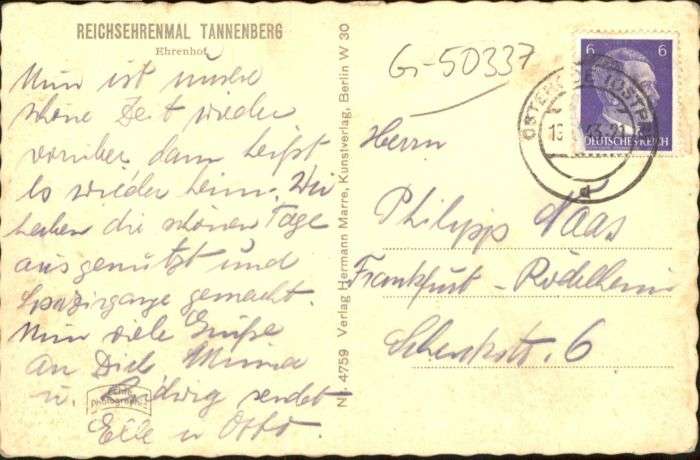 REICHSEHRENMAL TANNENBERG
Ehrenhof
Nun ist unsere
schöne Zeit wieder
vorüber dann heißt
es wieder heim. Wir
haben die schönen Tage
ausgenützt und
Spazirgänge gemacht.
Nun viele Grüße
an Dich, Minna
u. Ludwig sendet
Elle u Otto
Echte Photographie
Nr. 4759 Verlag Hermann Marre, Kunstverlag, Berlin W 30
G-50337
6 6
DEUTSCHES REICH
OSTERODE (OSTPR)
d
Herrn
Philipp Haas
Frankfurt-Rödelheim
Schenkstr. 6